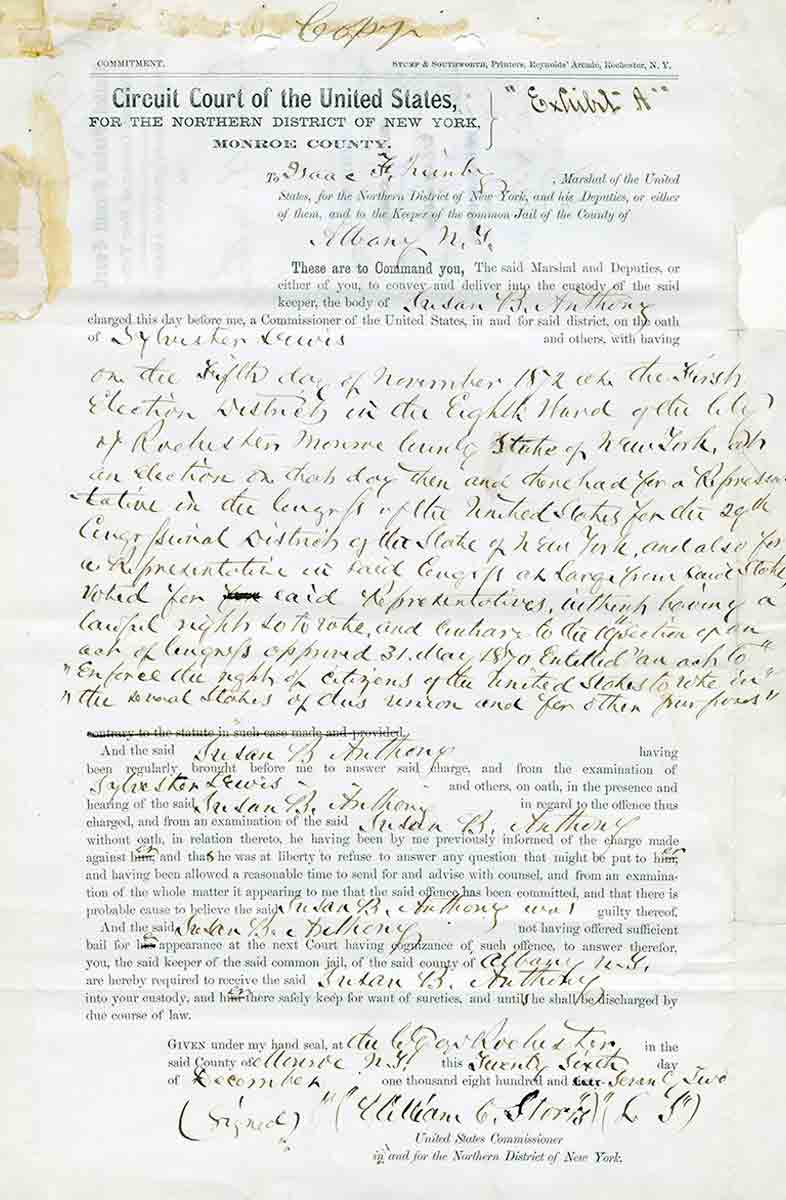 Copy
COMMITMENT. STUMP & SOUTHWORTH, Printers, Reynolds' Arcade, Rochester, N. Y.
Circuit Court of the United States,
FOR THE NORTHERN DISTRICT OF NEW YORK,
MONROE COUNTY.
"Exhibit A"
To Isaac F. Quinby, Marshal of the United
States, for the Northern District of New York, and his Deputies, or either
of them, and to the Keeper of the common Jail of the County of
Albany N.Y.
These are to Command you, The said Marshal and Deputies, or
either of you, to convey and deliver into the custody of the said
keeper, the body of Susan B. Anthony
charged this day before me, a Commissioner of the United States, in and for said district, on the oath
of Sylvester Lewis and others, with having
on the Fifth day of November 1872 at the First
Election District in the Eighth Ward of the City
of Rochester Monroe County State of New York, at
an election on that day then and there had for a Represen
tative in the Congress of the United States for the 29th
Congressional District of the State of New York, and also for
a Representative in said Congress at Large from said State,
voted for said Representatives, without having a
lawful right so to vote, and contrary to the section of an
act of Congress approved 31 May 1870 Entitled "an act to"
"Enforce the right of citizens of the United States to vote in"
"the several States of this union and for other purposes"
contrary to the statute in such case made and provided.
And the said Susan B Anthony having
been regularly brought before me to answer said charge, and from the examination of
Sylvester Lewis and others, on oath, in the presence and
hearing of the said Susan B. Anthony in regard to the offence thus
charged, and from an examination of the said Susan B. Anthony
without oath, in relation thereto, he having been by me previously informed of the charge made
against her, and that she was at liberty to refuse to answer any question that might be put to her,
and having been allowed a reasonable time to send for and advise with counsel, and from an examina-
tion of the whole matter it appearing to me that the said offence has been committed, and that there is
probable cause to believe the said Susan B. Anthony was guilty thereof,
And the said Susan B. Anthony not having offered sufficient
bail for her appearance at the next Court having cognizance of such offence, to answer therefor,
you, the said keeper of the said common jail, of the said county of Albany N.Y.
are hereby required to receive the said Susan B. Anthony
into your custody, and her there safely keep for want of sureties, and until she shall be discharged by
due course of law.
GIVEN under my hand seal, at the City of Rochester in the
said County of Monroe N.Y. this Twenty Sixth day
of December one thousand eight hundred and Seventy Two
(Signed) "(William C. Storrs)" (L S")
United States Commissioner
in and for the Northern District of New York.